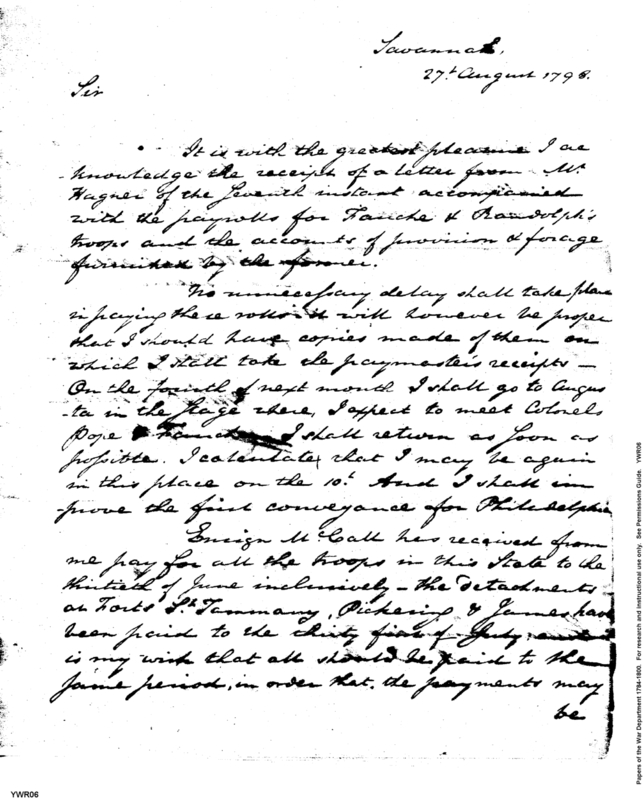 Savannah,
27t. August 1798.
Sir
It is with the greatest pleasure I ac
knowledge the receipt of a letter from Mr
Wagner of the Seventh instant accompanied
with the payrolls for Fauche & Randolph's
troops and the accounts of provision & forage
furnished by the former.
No unnecessary delay shall take place
in paying these rolls it will however be proper
that I should have copies made of them on
which I shall take the paymasters receipts —
On the fourth of next month I shall go to Augus
-ta in the Stage where, I expect to meet Colonels
Pope & I shall return as soon as
possible. I calculate, that I may be again
in this place on the 10t. And I shall im
prove the first conveyance for Philadelphia
Ensign McCall has received from
me pay for all the troops in this State to the
thirtieth of June inclusively — the detachments
at Forts St. Tammany, Pickering & James have
been paid to the thirty first of July
is my wish that all should be paid to the
same period, in order that, the payments may
be
YWR06
Papers of the War Department 1784-1800. For research and instructional use only. See Permissions Guide. YWR06